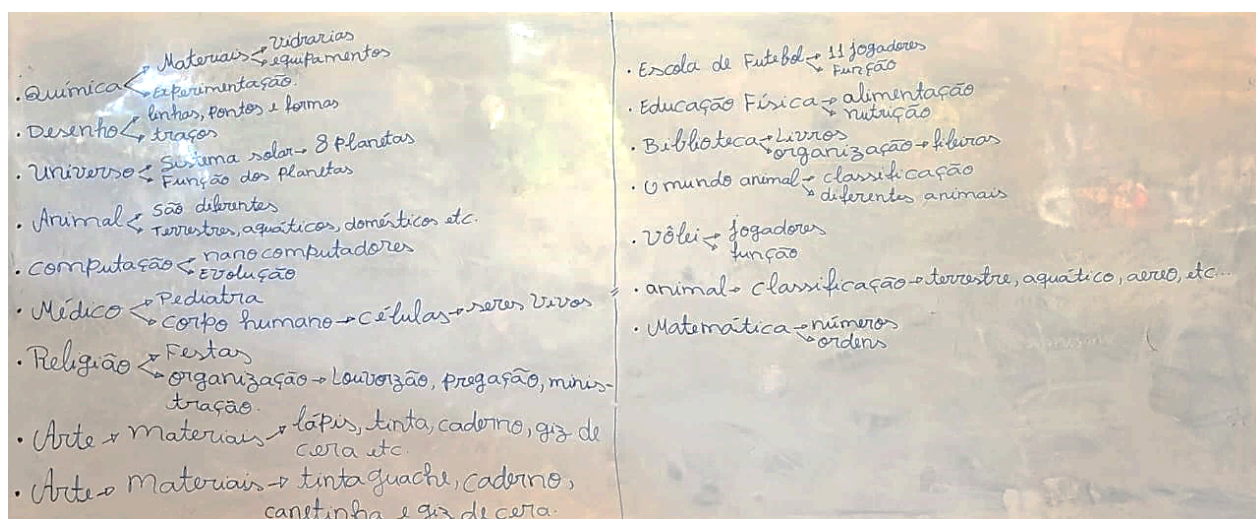 Materiais → Vidrarias
→ equipamentos
. Química
→ Experimentação.
linhas, pontos e formas
. Desenho
→ traços
. Universo
Sistema solar → 8 Planetas
Função dos Planetas
. Animal
São diferentes
Terrestres, aquáticos, domésticos etc.
. Computação
nanocomputadores
Evolução
. Médico
Pediatra
corpo humano → células → seres vivos
. Religião
Festas
organização → Louvorzão, pregação, minis-
tração.
. Arte → materiais → lápis, tinta, caderno, giz de
cera etc.
. Arte → materiais → tinta guache, caderno,
canetinha e giz de cera.
. Escola de Futebol → 11 jogadores
→ Função
. Educação Física → alimentação
→ nutrição
. Biblioteca → Livros
→ organização → fileiras
. O mundo animal → classificação
→ diferentes animais
. Vôlei
jogadores
função
. animal → classificação → terrestre, aquático, aereo, etc...
. Matemática → números
→ ordens